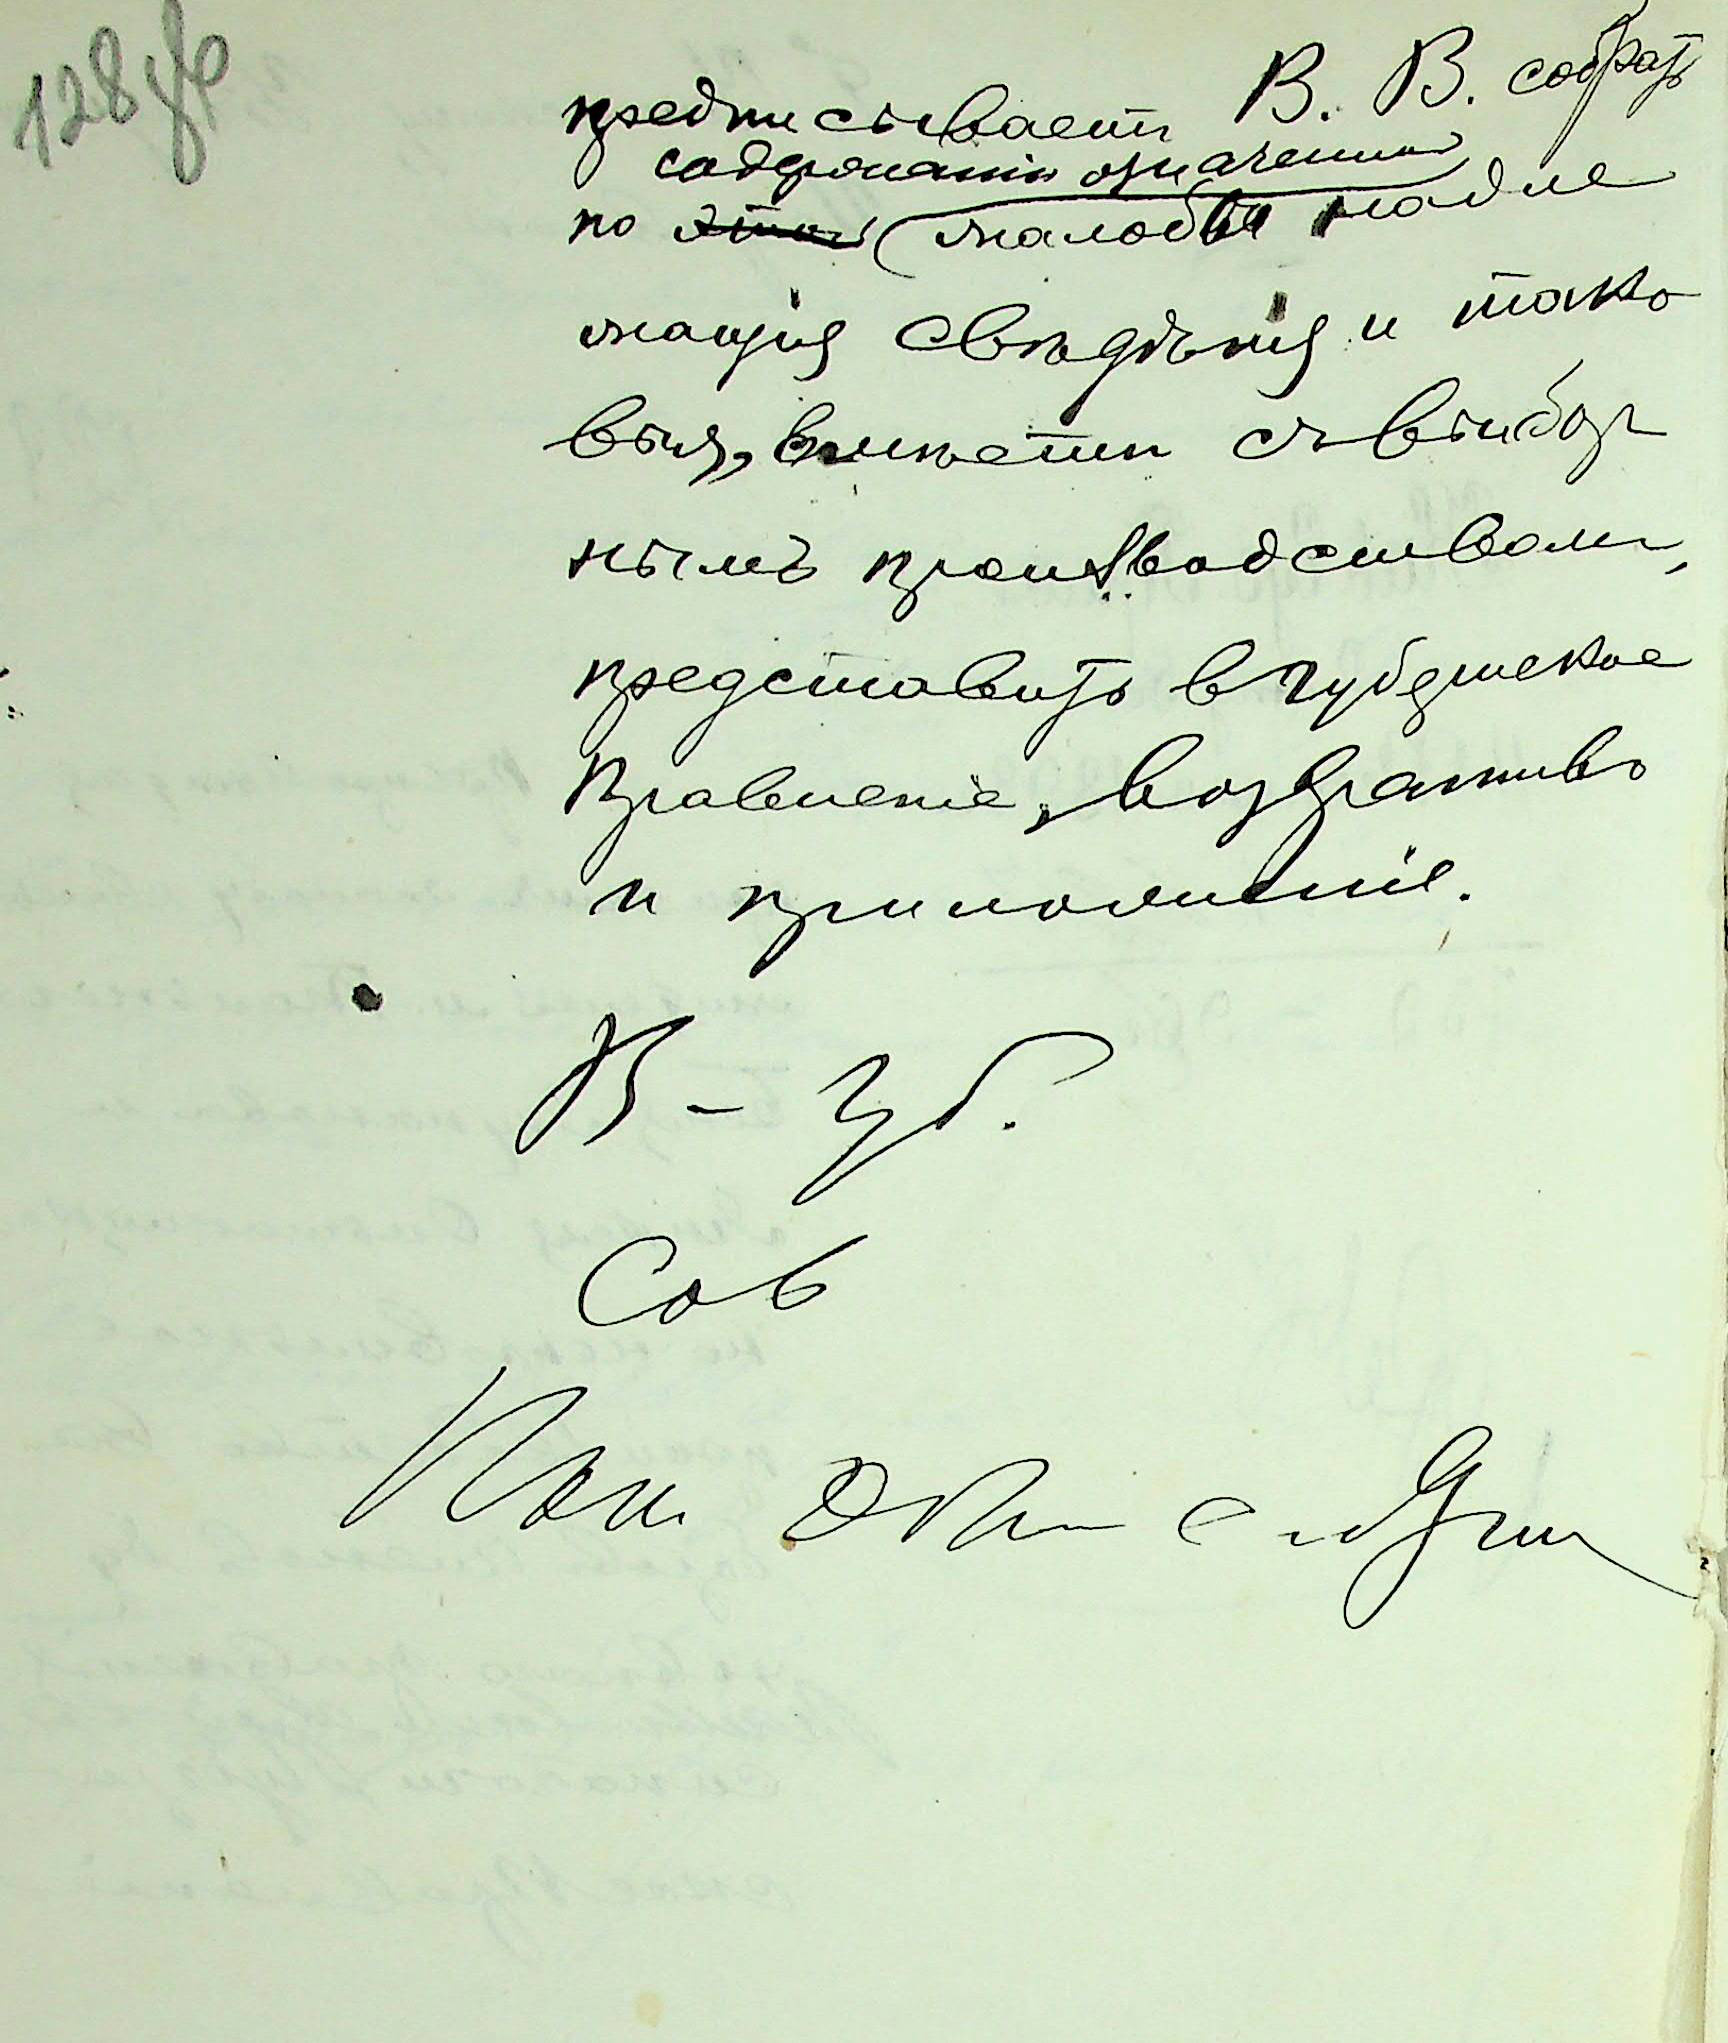 128 зв
предписываетъ В. В. собрать
содержанію означенной
по этой жалобы надле
жащія свѣдѣнія и тако
выя, вмѣстѣ съ выбор
нымъ производствомъ,
представить въ Губернское
Правленіе, возвративъ
и приложеніе.
В-Губ.
Сов